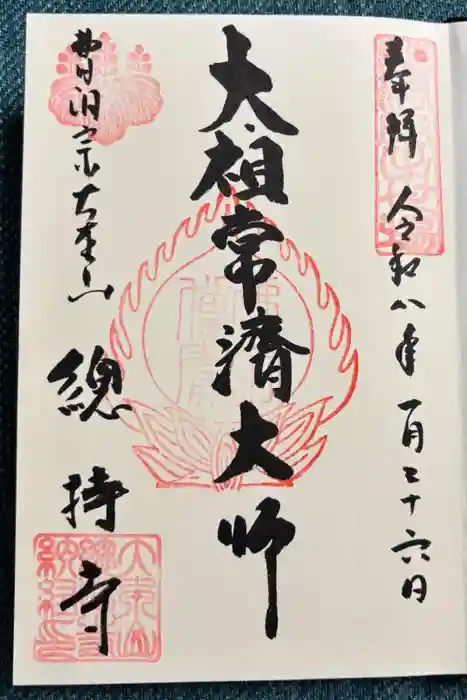 奉拝 令和八年一月二十六日
太祖常濟大師
曹洞宗大本山 總持寺